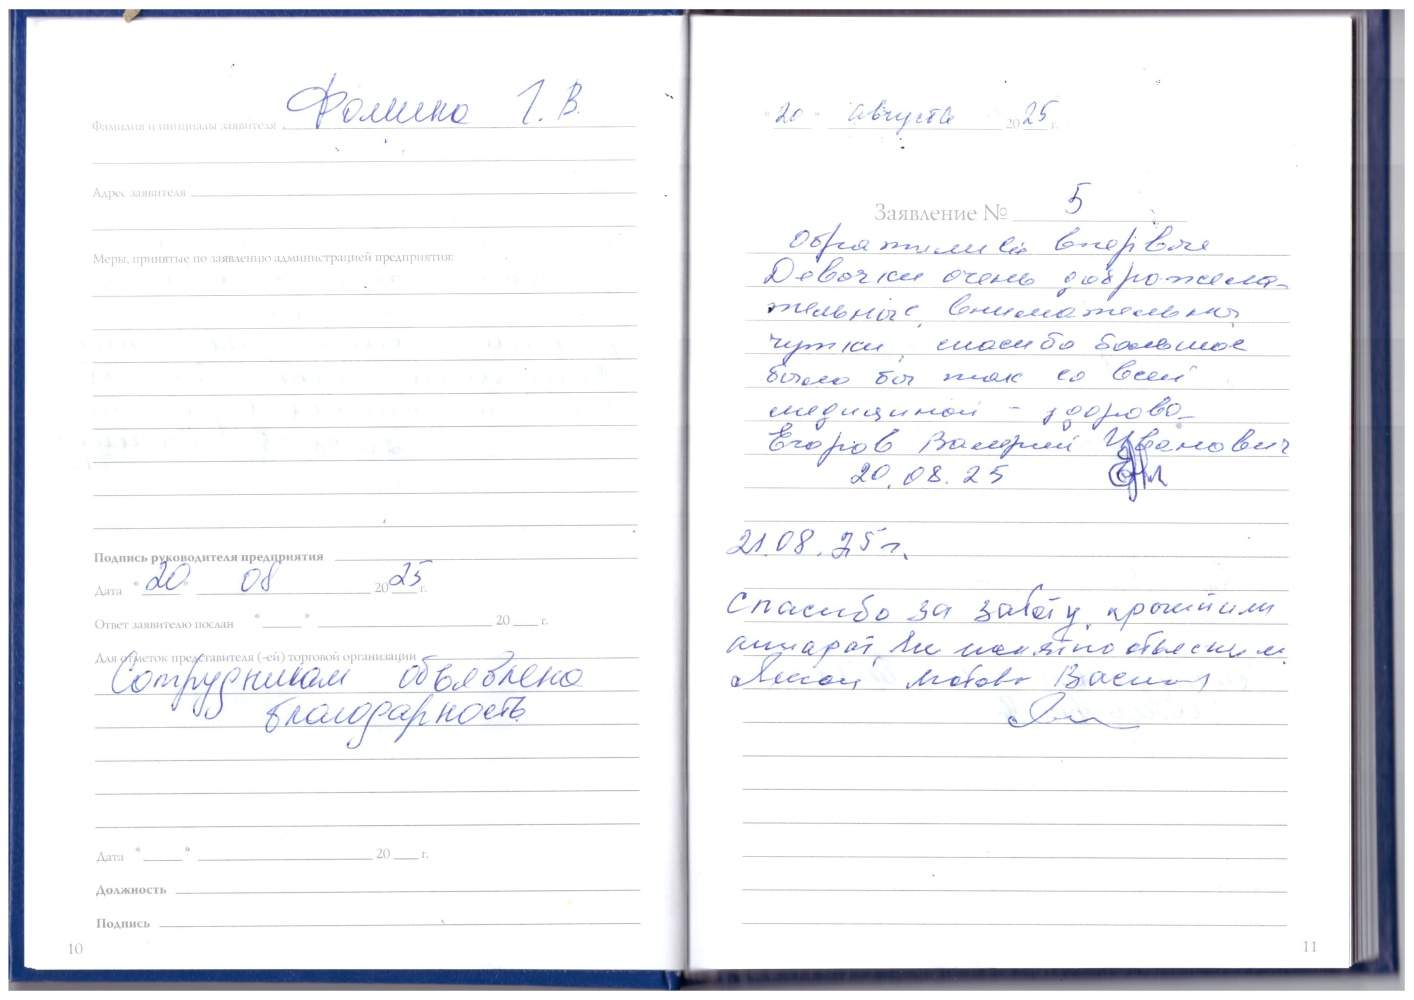 Фамилия и инициалы заявителя Фомина Г. В.
Адрес заявителя
Меры, принятые по заявлению администрацией предприятия:
Подпись руководителя предприятия
Дата "20" 08 2025 г.
Ответ заявителю послан " " 20 г.
Для отметок представителя (-ей) торговой организации
Сотрудникам объявлена
благодарность
Дата " " 20 г.
Должность
Подпись
10
"20" августа 2025 г.
Заявление № 5
Обратились впервые
Девочки очень доброжела-
тельные, внимательны,
чутки, спасибо большое
было бы так со всей
медициной - здорово
Егоров Валерий Иванович
20.08.25
21.08.25 г.
Спасибо за заботу,
аппарат, объяснили
11